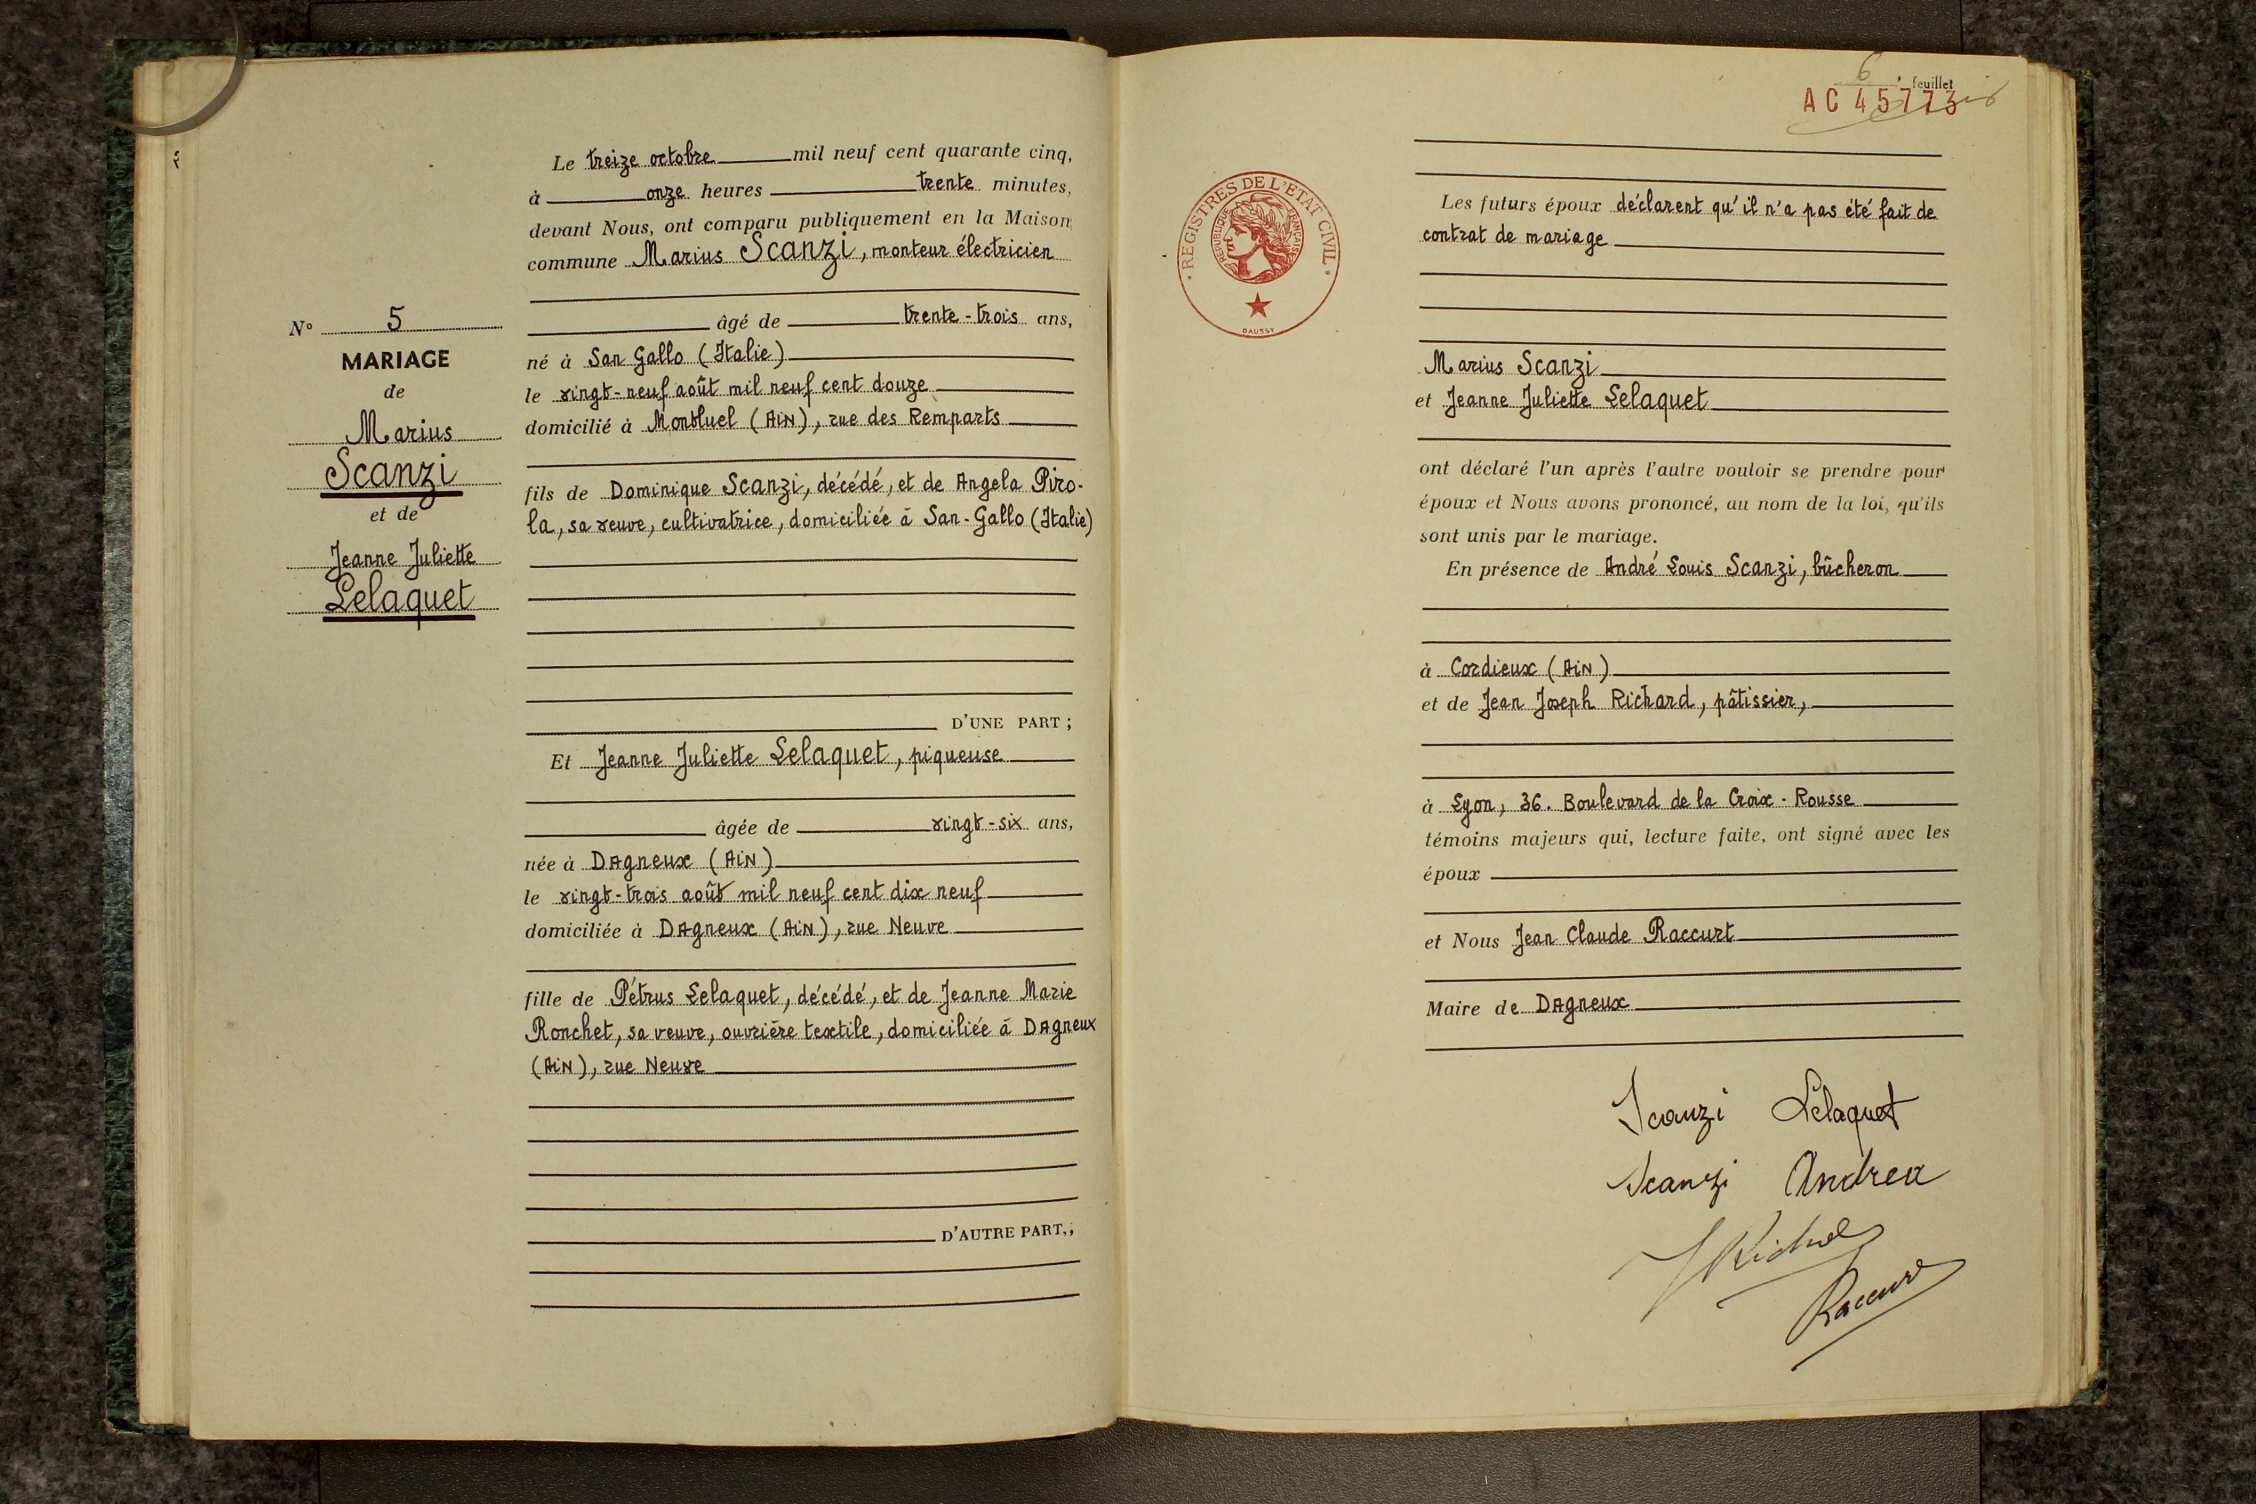 Le treize octobre mil neuf cent quarante cinq,
à onze heures trente minutes,
devant Nous, ont comparu publiquement en la Maison
commune Marius Scanzi, monteur électricien
âgé de trente-trois ans,
né à San Gallo (Italie)
le vingt-neuf août mil neuf cent douze
domicilié à Montluel (Ain), rue des Remparts
fils de Dominique Scanzi, décédé, et de Angela Piro-
la, sa veuve, cultivatrice, domiciliée à San-Gallo (Italie)
D'UNE PART ;
Et Jeanne Juliette Lelaquet, piqueuse
âgée de vingt-six ans,
née à Dagneux (Ain)
le vingt-trois août mil neuf cent dix neuf
domiciliée à Dagneux (Ain), rue Neuve
fille de Pétrus Lelaquet, décédé, et de Jeanne Marie
Ronchet, sa veuve, ouvrière textile, domiciliée à Dagneux
(Ain), rue Neuve
D'AUTRE PART,;
N° 5
MARIAGE
de
Marius
Scanzi
et de
Jeanne Juliette
Lelaquet
6 feuillet
AC 45773
REGISTRES DE L'ETAT CIVIL
REPUBLIQUE FRANÇAISE
DAUSSY
Les futurs époux déclarent qu'il n'a pas été fait de
contrat de mariage
Marius Scanzi
et Jeanne Juliette Lelaquet
ont déclaré l'un après l'autre vouloir se prendre pour
époux et Nous avons prononcé, au nom de la loi, qu'ils
sont unis par le mariage.
En présence de André Louis Scanzi, bûcheron
à Cordieux (Ain)
et de Jean Joseph Richard, pâtissier,
à Lyon, 36. Boulevard de la Croix-Rousse
témoins majeurs qui, lecture faite, ont signé avec les
époux
et Nous Jean Claude Raccurt
Maire de Dagneux
Scanzi Lelaquet
Scanzi Andrea
Raccurt